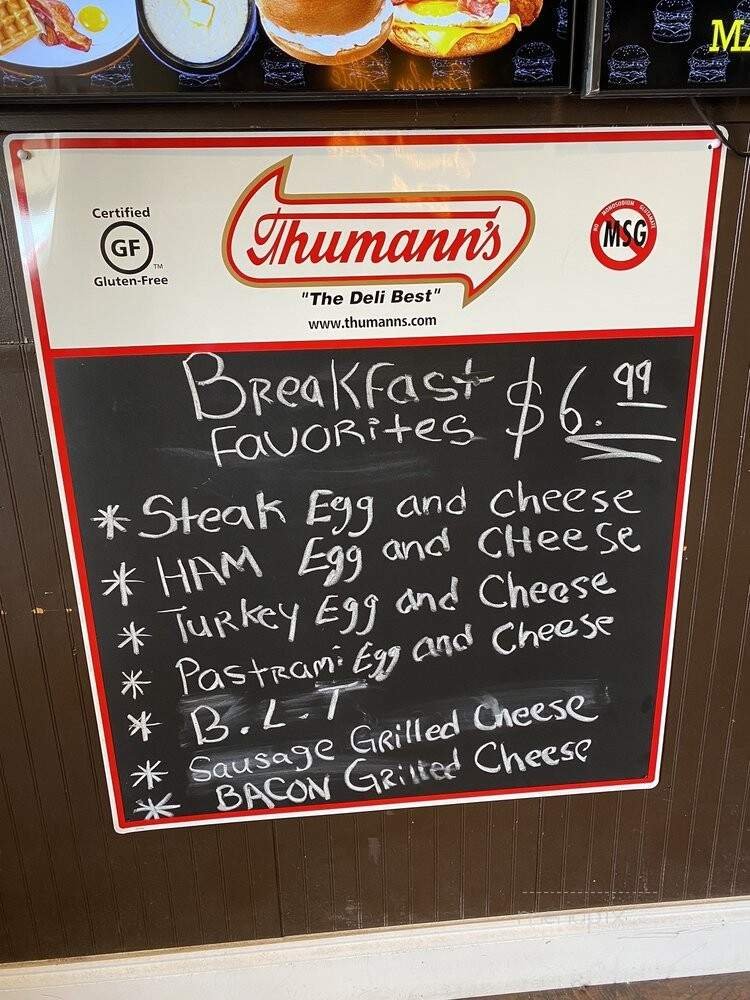 MA
Certified
GF
TM
Gluten-Free
Thumann's
"The Deli Best"
www.thumanns.com
NO MONOSODIUM GLUTAMATE
MSG
Breakfast
Favorites
$6.99
* Steak Egg and cheese
* HAM Egg and CHeese
* Turkey Egg and Cheese
* Pastrami Egg and Cheese
* B.L.T
* Sausage Grilled Cheese
* BACON Grilled Cheese